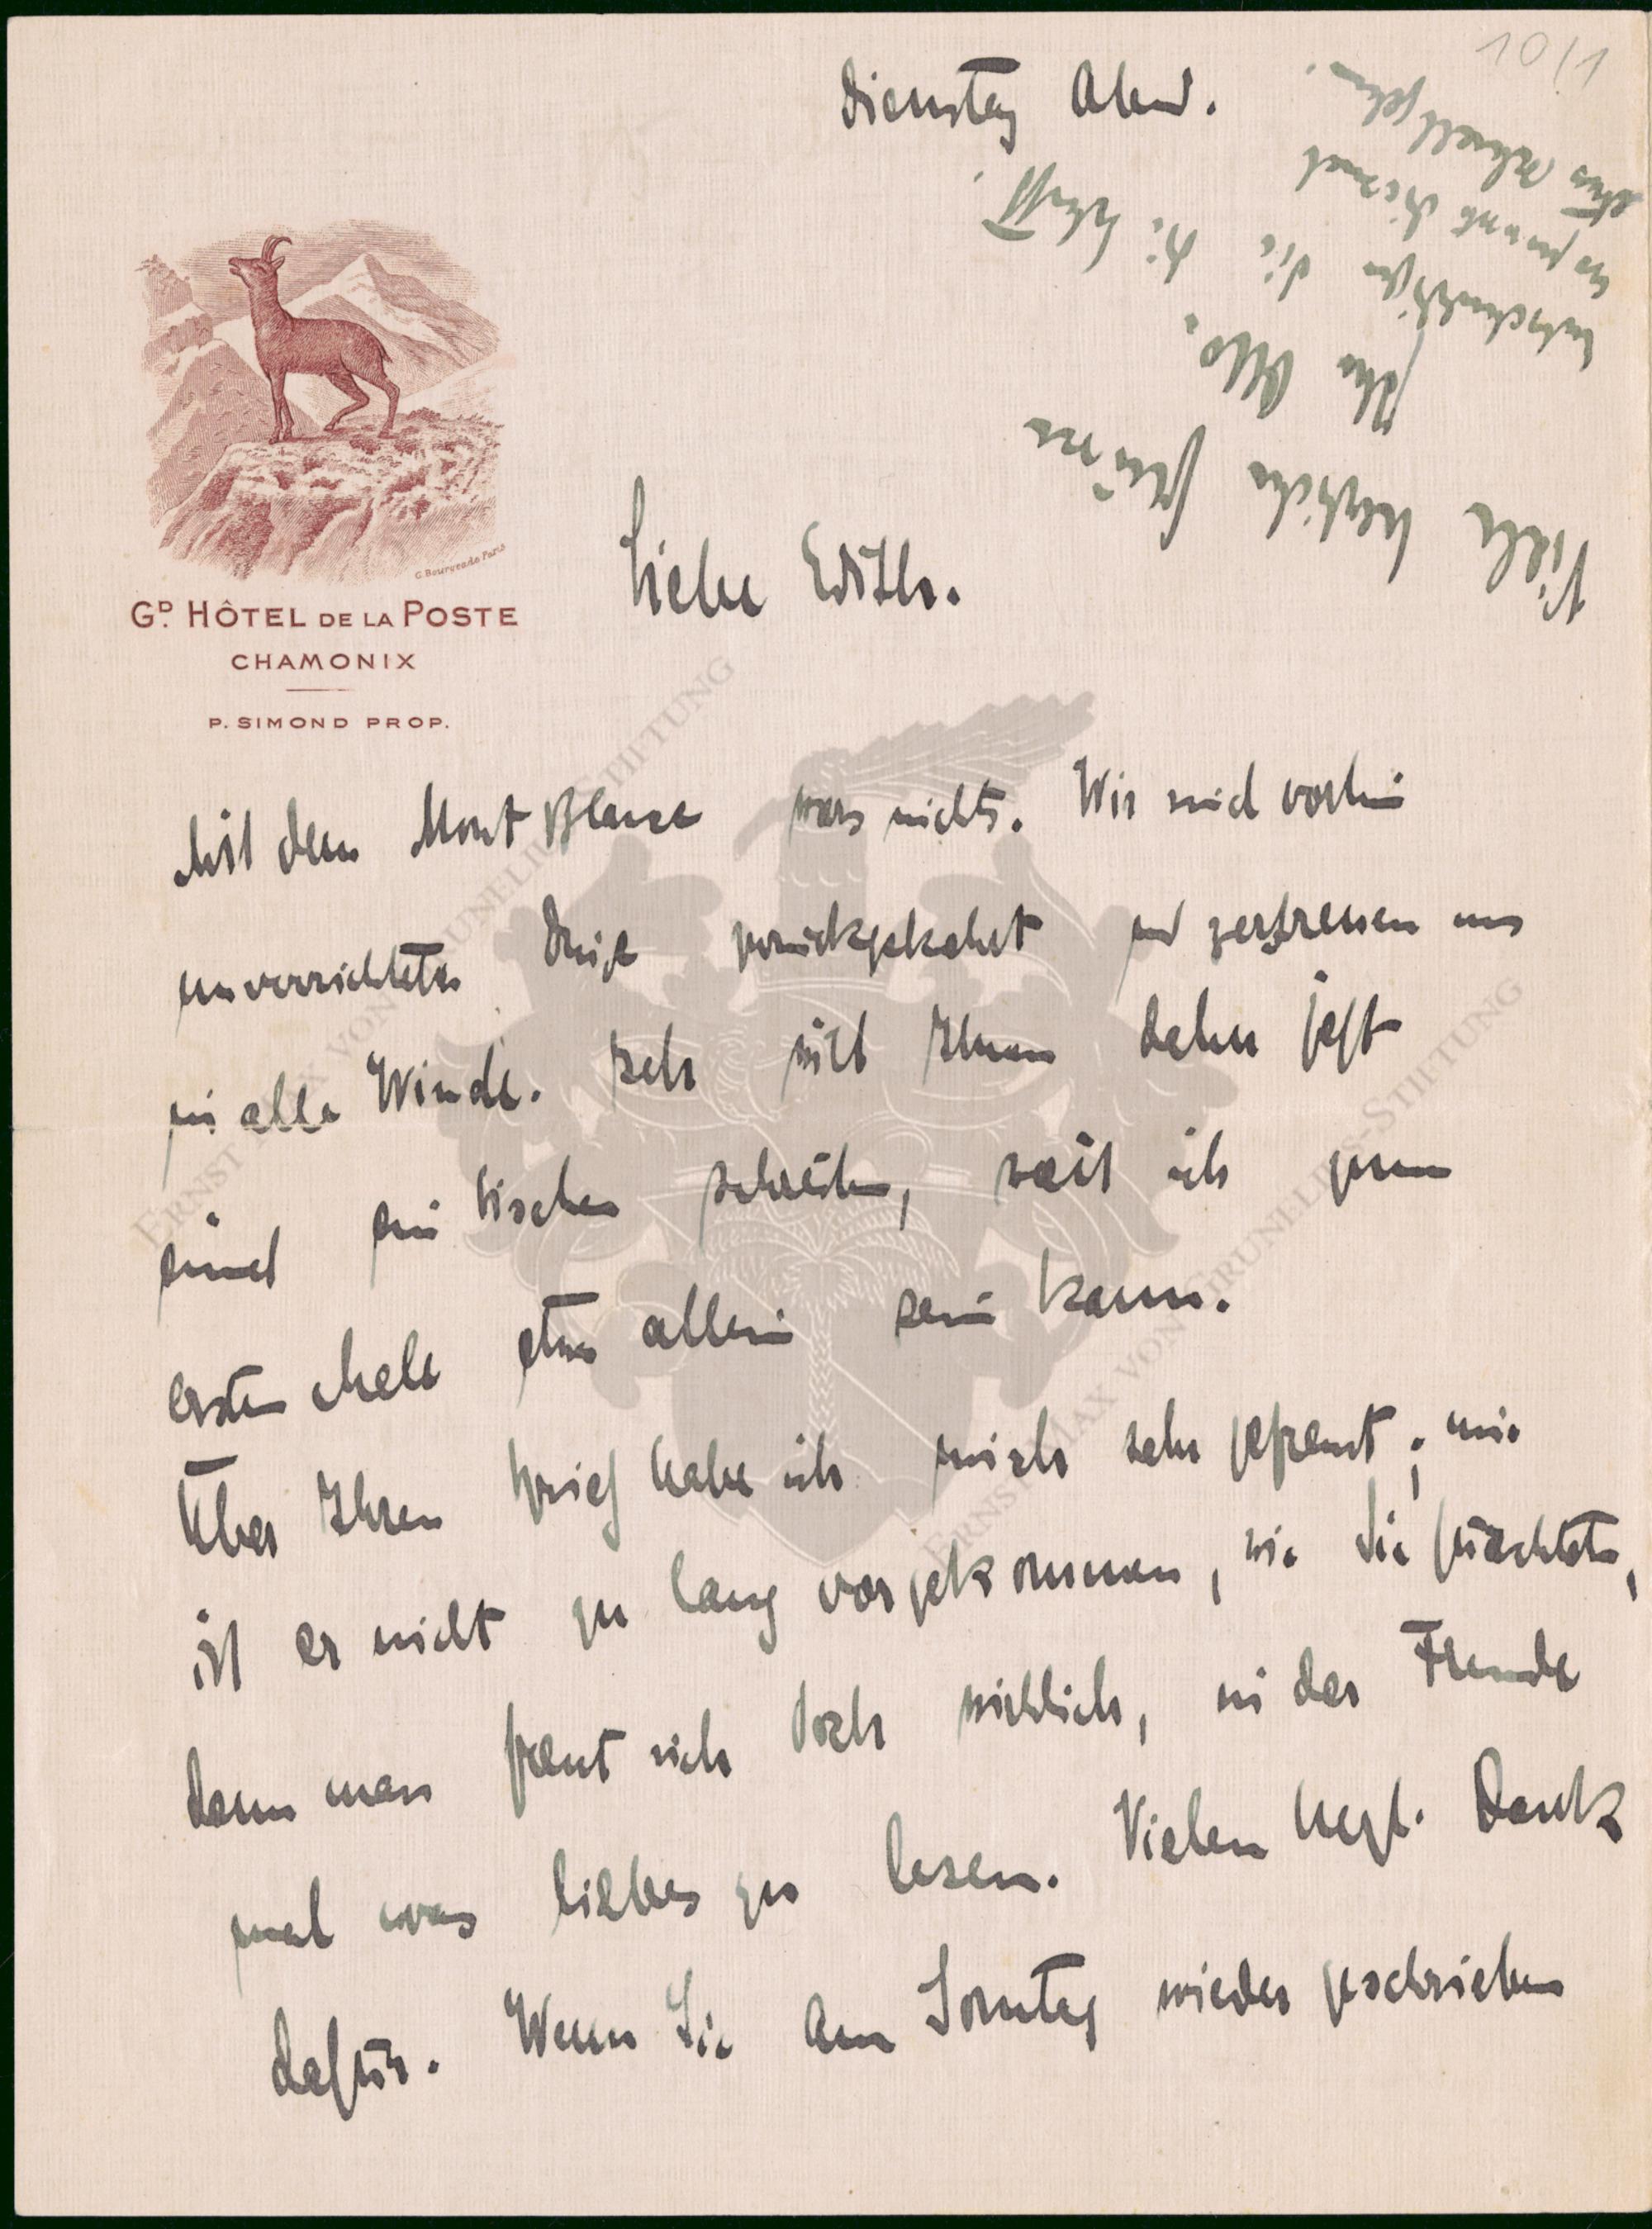 10/1
Dienstag Abend.
G. Bourgeade Paris
GD. HÔTEL DE LA POSTE
CHAMONIX
P. SIMOND PROP.
Liebe Edith.
Mit dem Mont Blanc wars nichts. Wir sind vorhin
unverrichteter Dinge zurückgekehrt und zerstreuen uns
in alle Winde. Ich will Ihnen daher jetzt
einmal ein bischen schreiben, weil ich zum
ersten Male etwas allein sein kann.
Über Ihren Brief habe ich mich sehr gefreut; mir
ist er nicht zu lang vorgekommen, wie Sie fürchteten,
denn man freut sich doch wirklich, in der Fremde
mal was liebes zu lesen. Vielen herzl. Dank
dafür. Wenn Sie am Sonntag wieder geschrieben
Viele herzliche Grüsse
Ihr Otto.
Entschuldigen Sie die Schrift.
es musste diesmal
etwas schnell gehen.
ERNST MAX VON GRUNELIUS-STIFTUNG
ERNST MAX VON GRUNELIUS-STIFTUNG